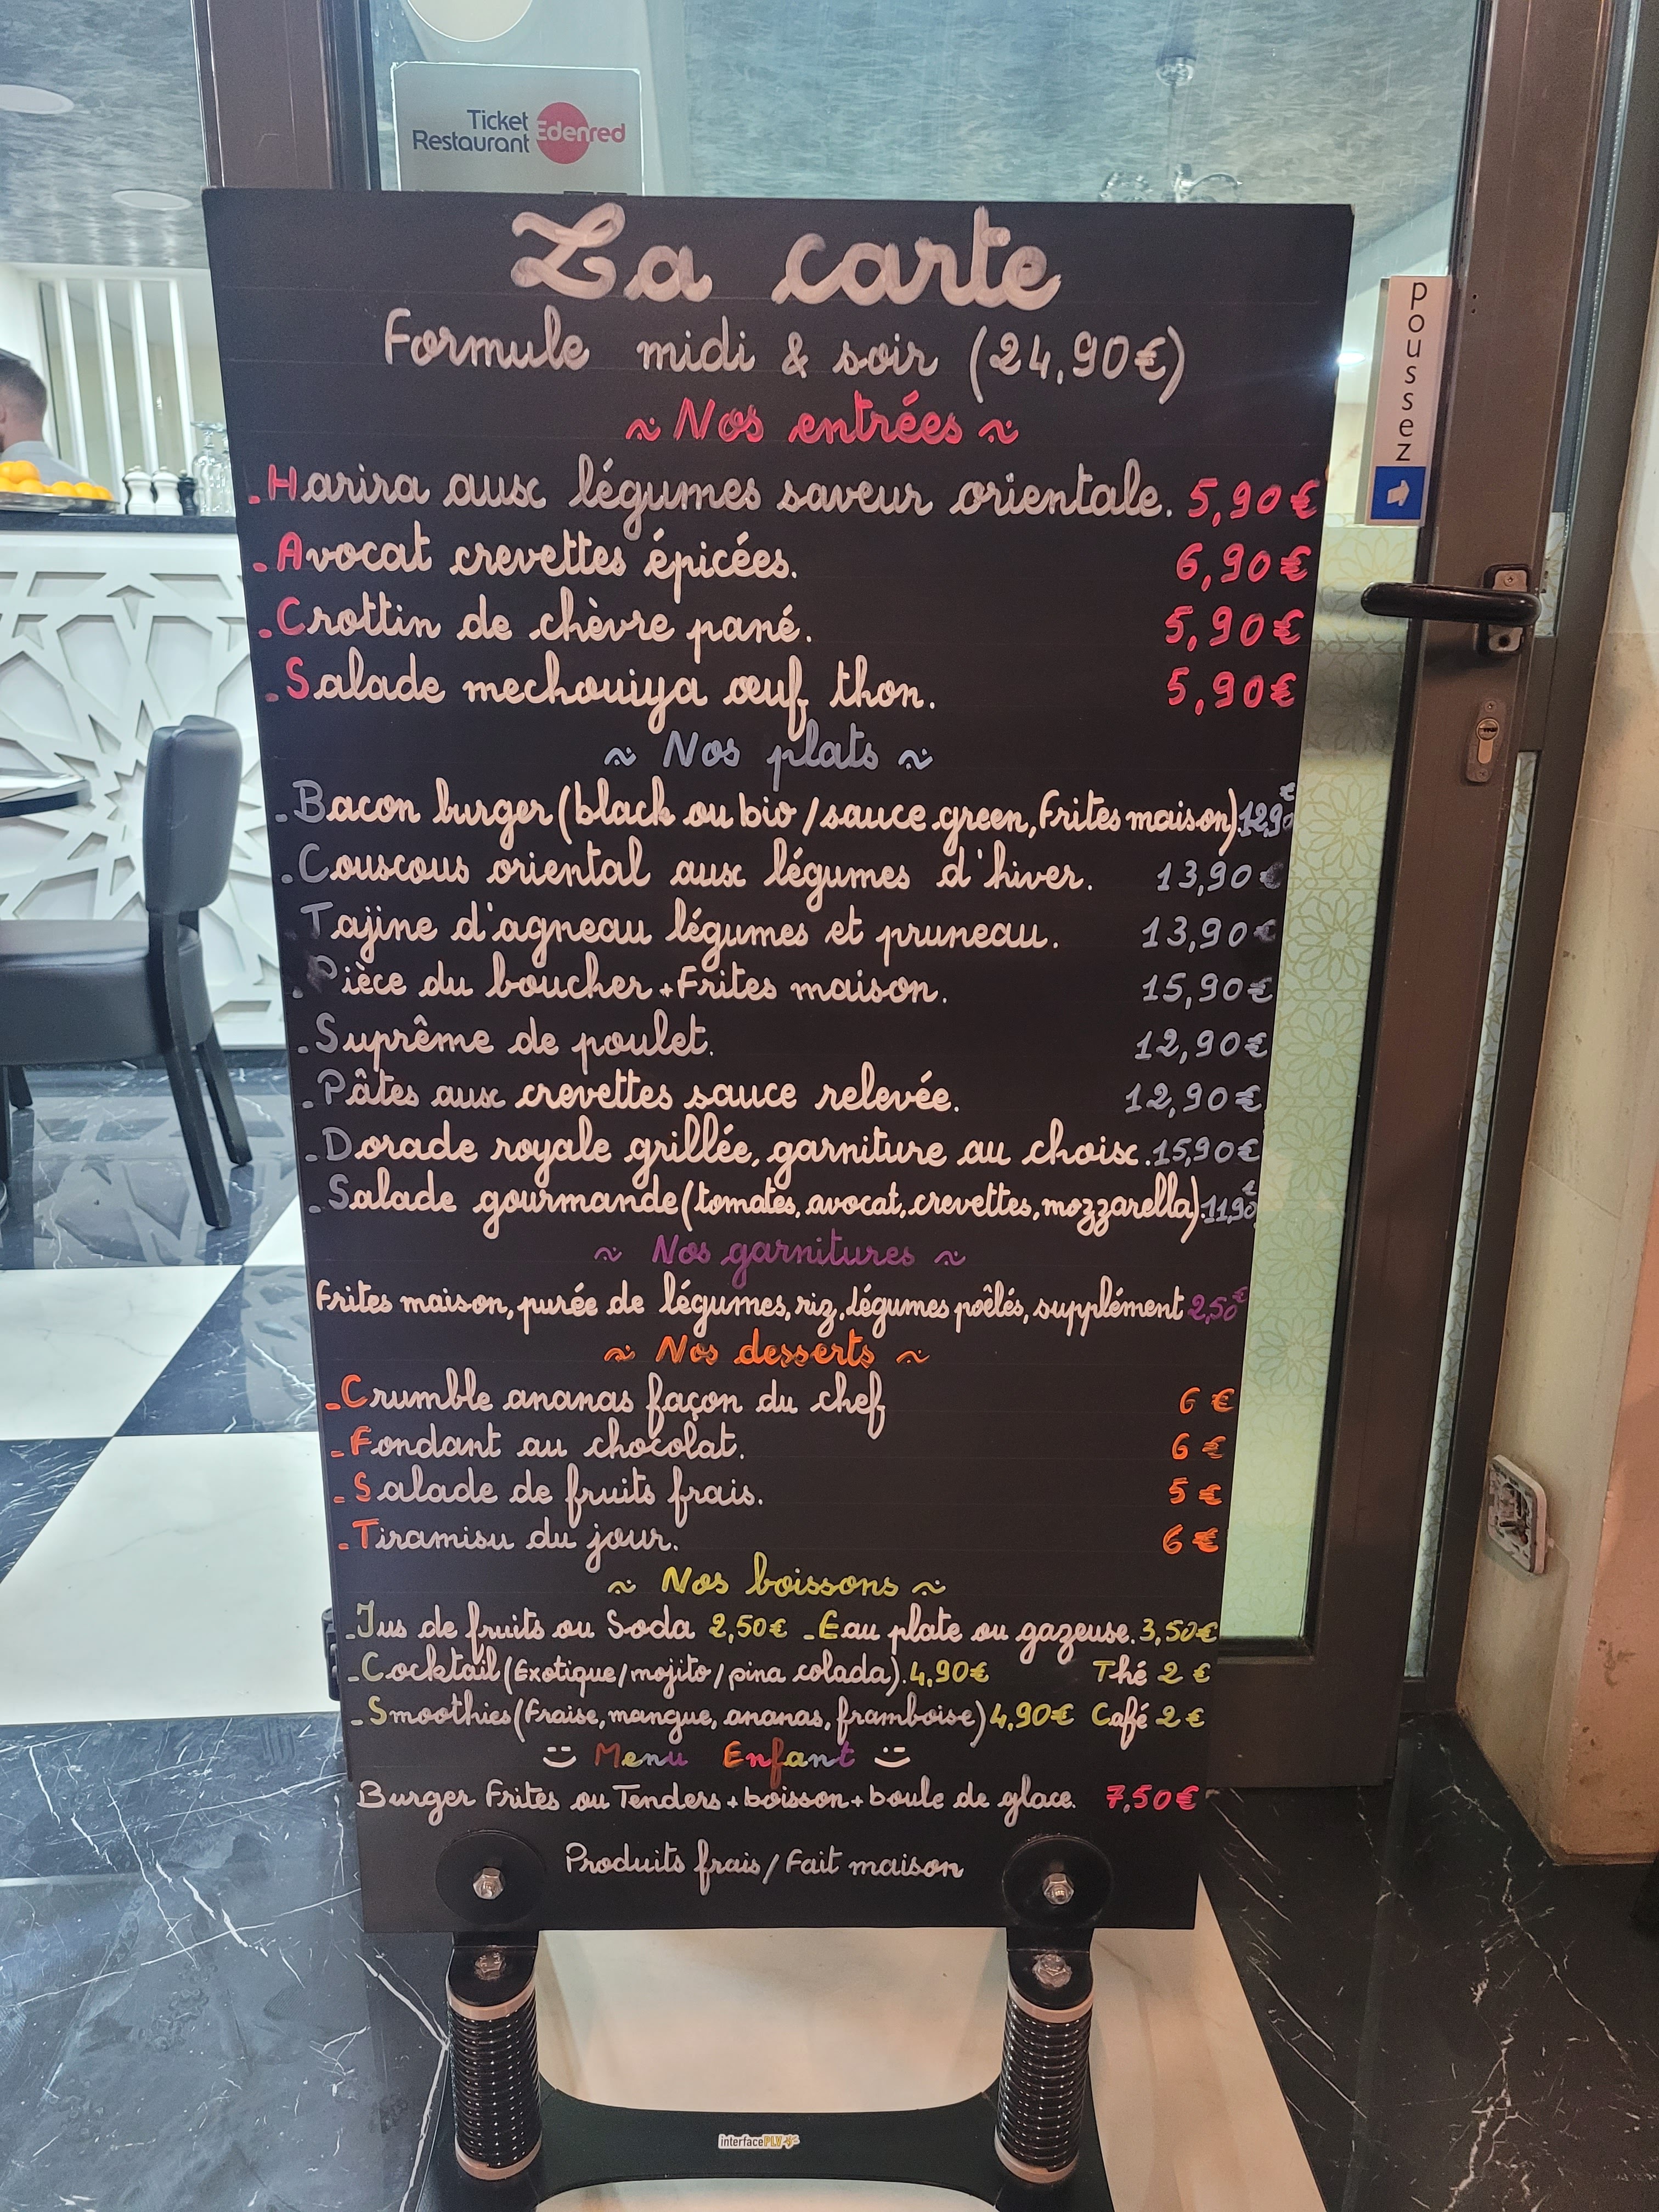 Ticket
Restaurant
Edenred
poussez
La carte
Formule midi & soir (24,90€)
~ Nos entrées ~
- Harira aux légumes saveur orientale. 5,90€
- Avocat crevettes épicées. 6,90€
- Crottin de chèvre pané. 5,90€
- Salade mechouiya œuf thon. 5,90€
~ Nos plats ~
- Bacon burger (black ou bio / sauce green, Frites maison). 12,90€
- Couscous oriental aux légumes d'hiver. 13,90€
Tajine d'agneau légumes et pruneau. 13,90€
- Pièce du boucher + Frites maison. 15,90€
- Suprême de poulet. 12,90€
- Pâtes aux crevettes sauce relevée. 12,90€
- Dorade royale grillée, garniture au choix. 15,90€
- Salade gourmande (tomates, avocat, crevettes, mozzarella). 11,90€
~ Nos garnitures ~
Frites maison, purée de légumes, riz, légumes poêlés, supplément 2,50€
~ Nos desserts ~
- Crumble ananas façon du chef 6 €
- Fondant au chocolat. 6 €
- Salade de fruits frais. 5 €
- Tiramisu du jour. 6 €
~ Nos boissons ~
- Jus de fruits ou Soda 2,50€ - Eau plate ou gazeuse. 3,50€
- Cocktail (Exotique / mojito / pina colada). 4,90€ Thé 2 €
- Smoothies (Fraise, mangue, ananas, framboise) 4,90€ Café 2 €
Menu Enfant
Burger Frites ou Tenders + boisson + boule de glace. 7,50€
Produits frais / Fait maison
interfacePLV